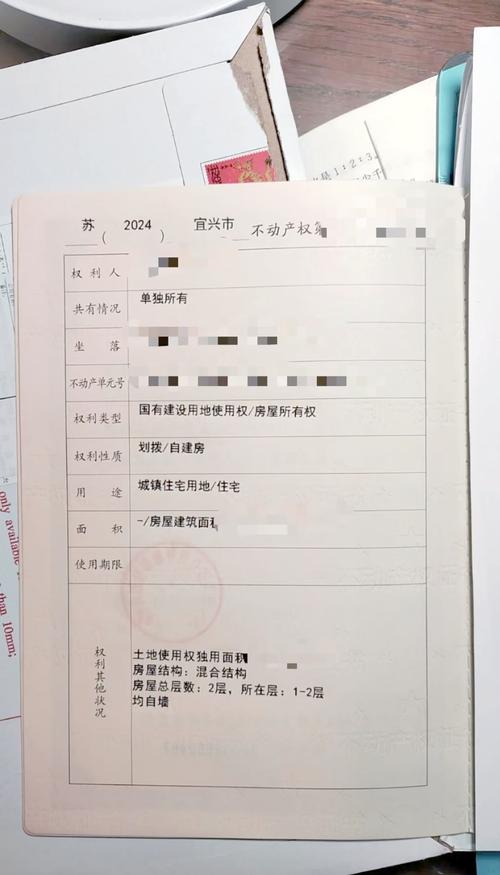 苏 ( 2024 ) 宜兴市 不动产权第
权利人
共有情况 单独所有
坐落
不动产单元号
权利类型 国有建设用地使用权/房屋所有权
权利性质 划拨/自建房
用途 城镇住宅用地/住宅
面积 -/房屋建筑面积
使用期限
权利其他状况
土地使用权独用面积
房屋结构：混合结构
房屋总层数：2层，所在层：1-2层
均自墙
only available
than 10mm;